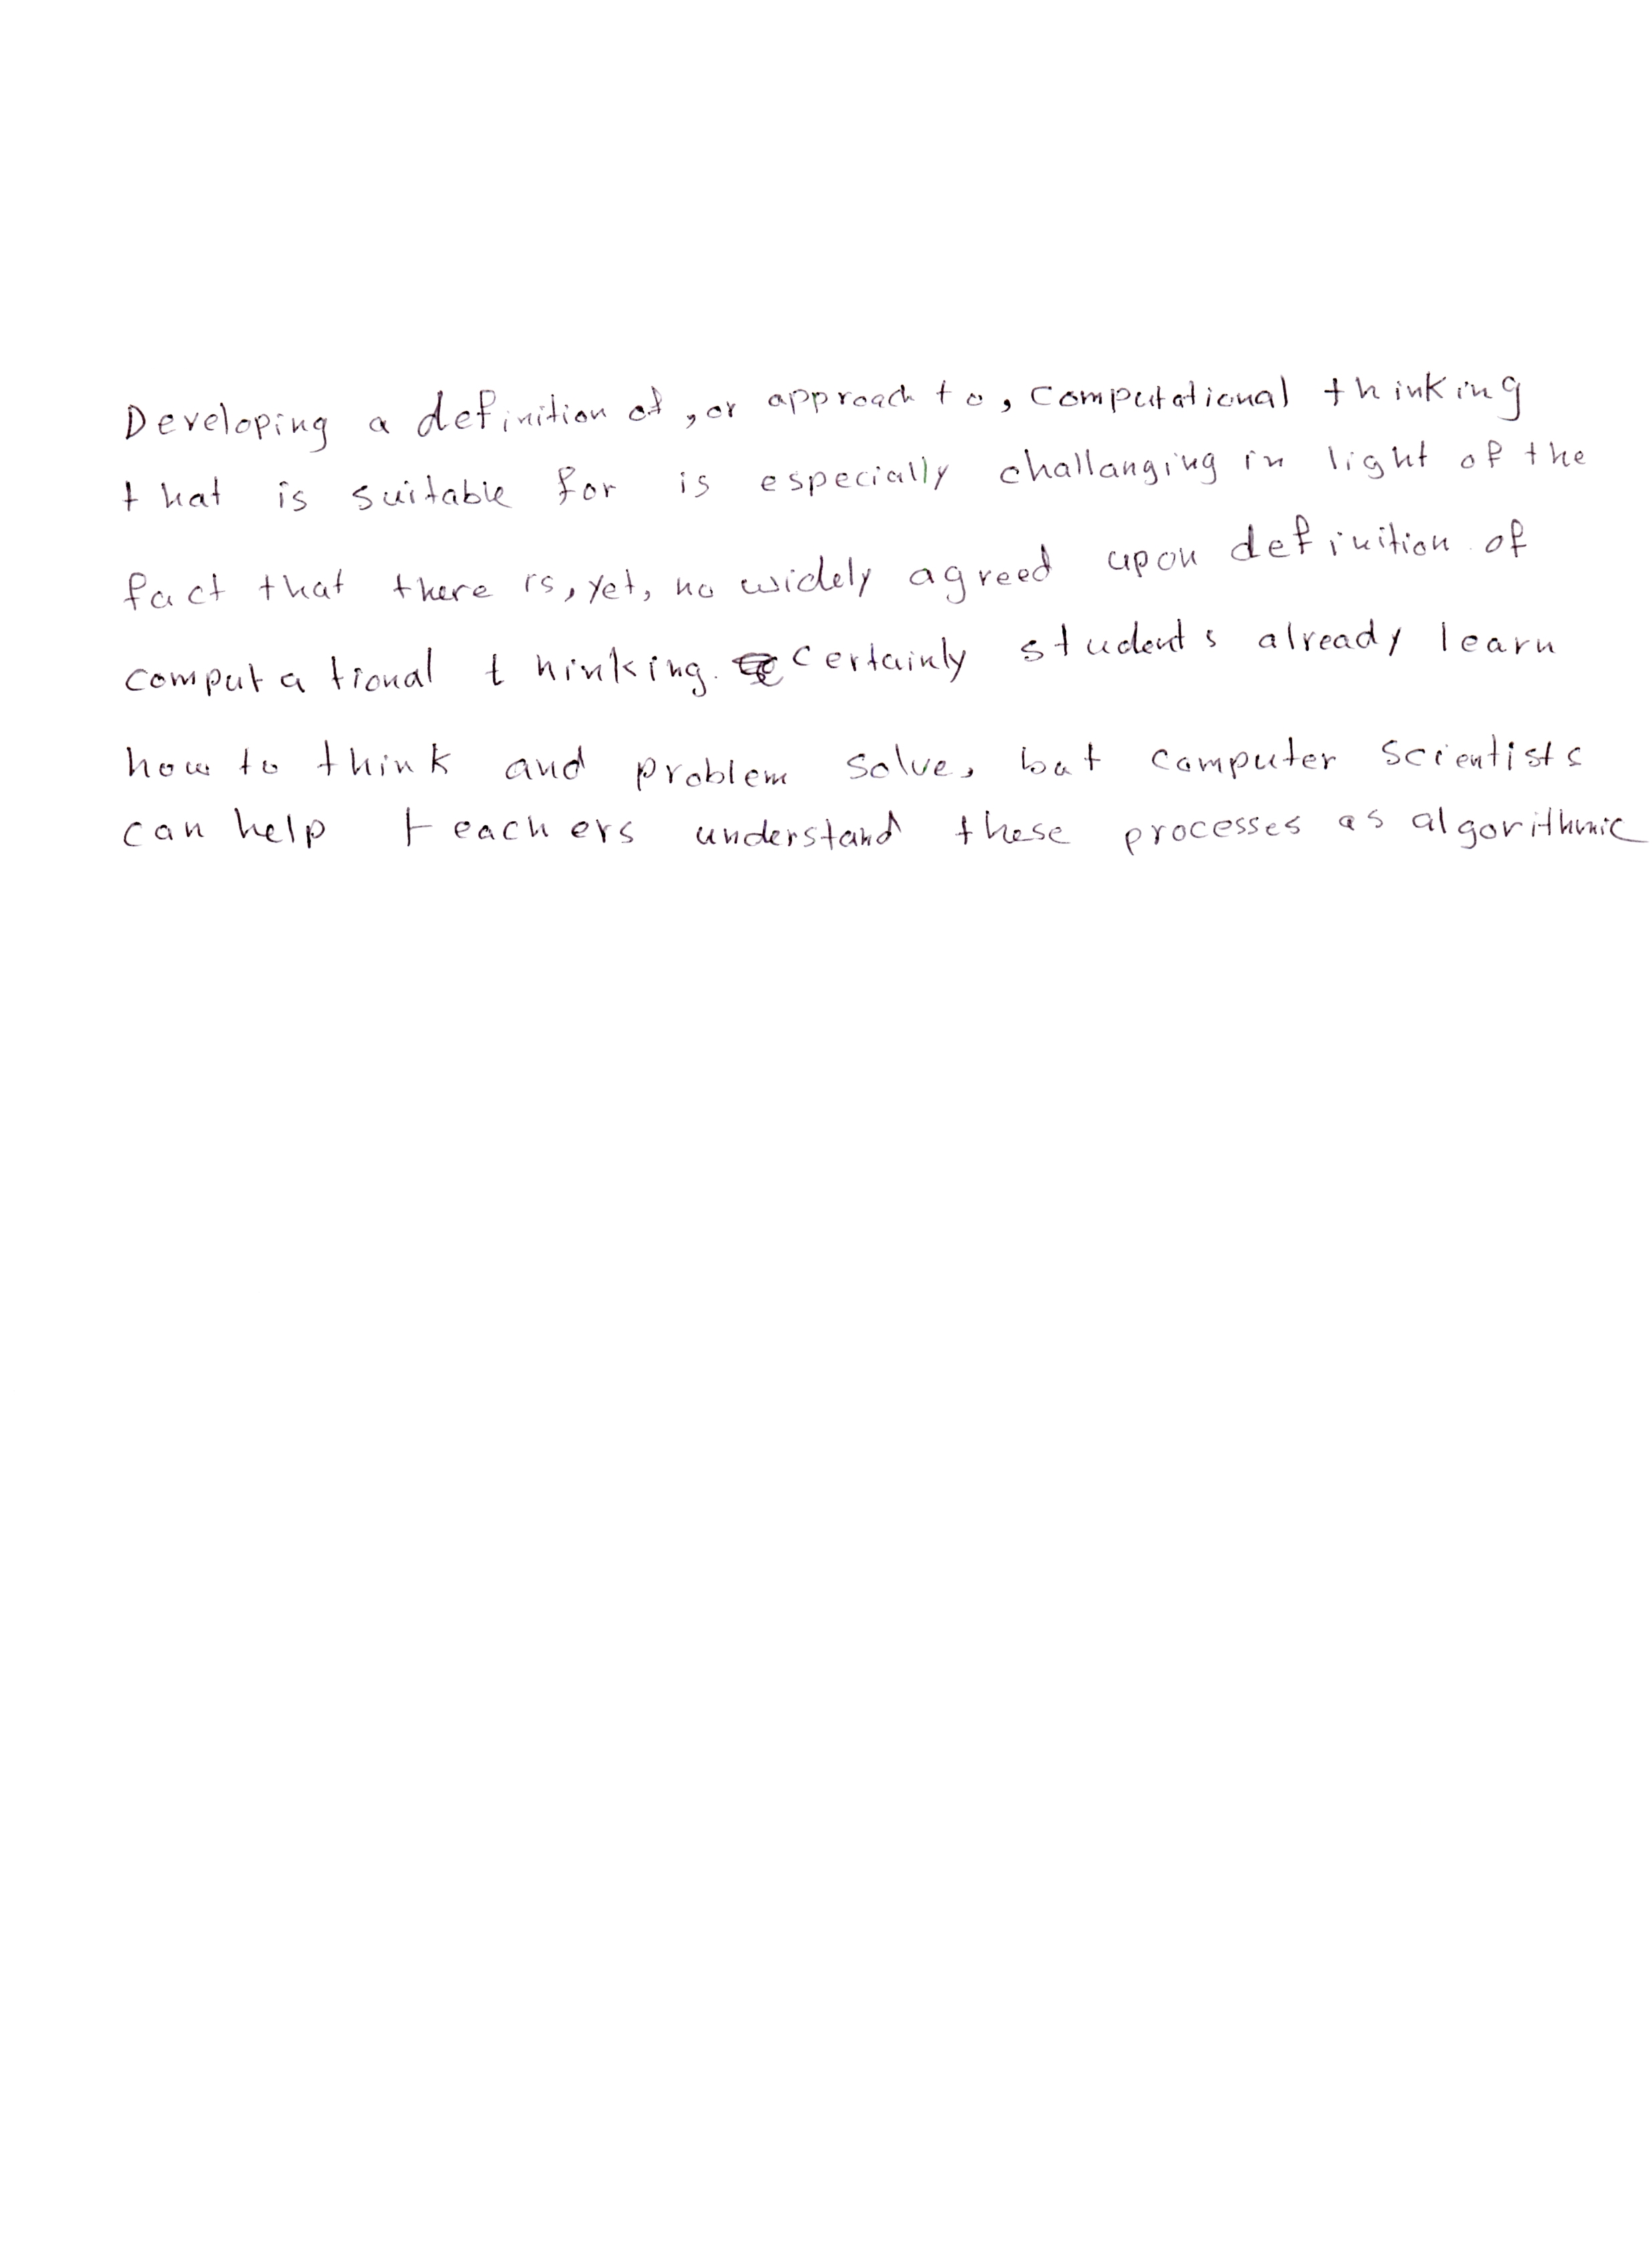 Developing a definition of, or approach to, computational thinking
that is suitable for is especially challanging in light of the
fact that there is, yet, no widely agreed upon definition of
computational thinking. Certainly students already learn
how to think and problem solve, but computer scientists
can help teachers understand these processes as algorithmic